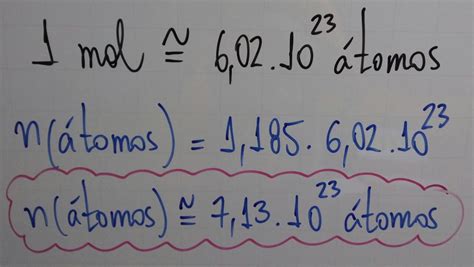 1 mol ≅ 6,02.10²³ átomos
n(átomos) = 1,185. 6,02.10²³
n(átomos) ≅ 7,13.10²³ átomos